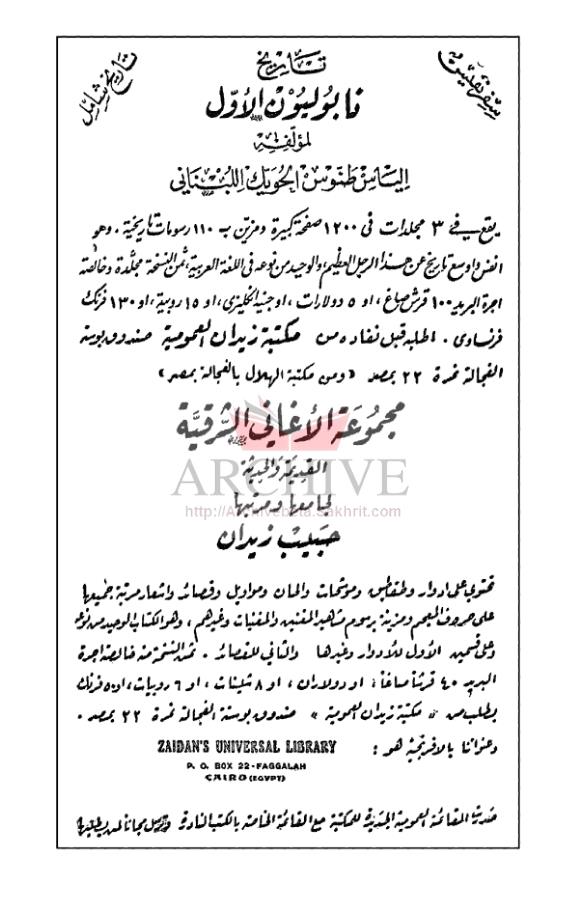 سفر نفيس
تاريخ شامل
تاريخ
نابوليون الأول
لمؤلفه
الياس طنوس الحويك اللبناني
يقع في ٣ مجلدات في ١٢٠٠ صفحة كبيرة ومزين بـ ١١٠ رسومات تاريخية. وهو
انفس واوسع تاريخ عن هذا الرجل العظيم والوحيد من نوعه في اللغة العربية، ثمن النسخة مجلدة وخالصة
اجرة البريد ١٠٠ قرش صاغ، او ٥ دولارات، او جنيه انكليزي، او ١٥ روبية، او ١٣٠ فرنك
فرنساوي. اطلبه قبل نفاده من مكتبة زيدان العمومية صندوق بوستة
الفجالة نمرة ٢٢ بمصر «ومن مكتبة الهلال بالفجالة بمصر»
مجموعة الأغاني الشرقية
القديمة والحديثة
ARCHIVE
لجامعها ومرتبها
http://Archivebeta.Sakhrit.com
حبيب زيدان
تحتوي على ادوار وطقاطيق وموشحات والحان ومواويل وقصائد واشعار مرتبة جميعها
على حروف المعجم ومزينة برسوم مشاهير المغنين والمغنيات وغيرهم، وهو الكتاب الوحيد من نوعه
وعلى قسمين الأول للأدوار وغيرها والثاني للقصائد. ثمن النسخة منه خالصة اجرة
البريد ٤٠ قرشاً صاغاً، او دولاران، او ٨ شلينات، او ٦ روبيات، او ٥٠ فرنك
يطلب من «مكتبة زيدان العمومية» صندوق بوستة الفجالة نمرة ٢٢ بمصر.
وعنواننا بالافرنجية هو:
ZAIDAN'S UNIVERSAL LIBRARY
P. O. BOX 22-FAGGALAH
CAIRO (EGYPT)
صدرت القائمة العمومية الجديدة للمكتبة مع القائمة الخاصة بالكتب النادرة وترسل مجاناً لمن يطلبها